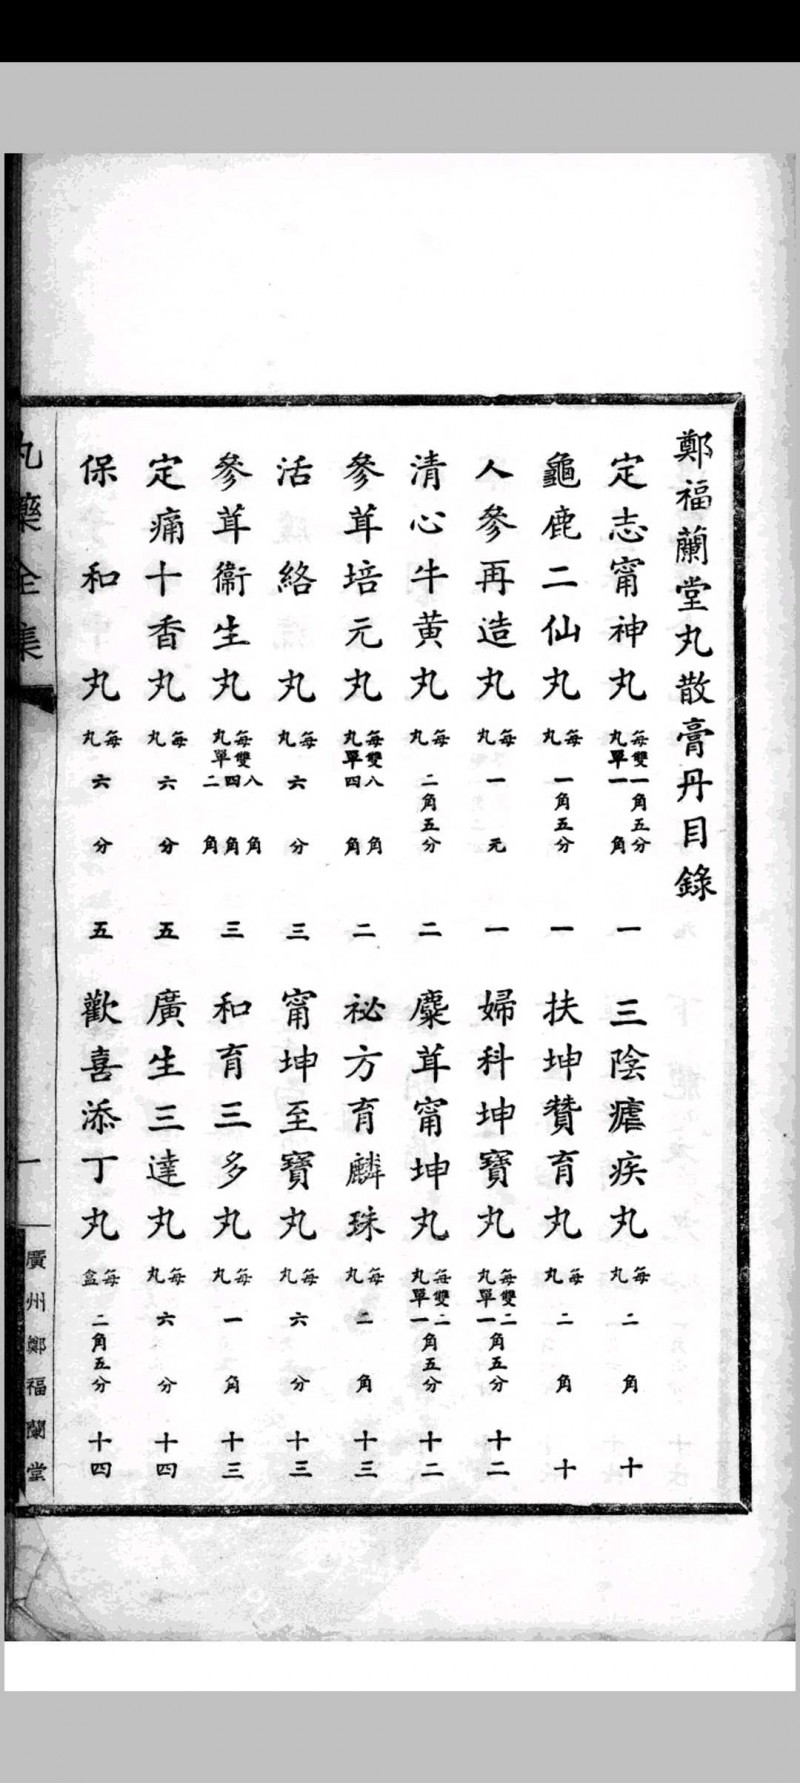 鄭福蘭堂丸散膏丹目錄
定志甯神丸 每丸雙一角五分單一角 一 三陰瘧疾丸 每丸二角 十
龜鹿二仙丸 每丸一角五分 一 扶坤贊育丸 每丸二角 十
人參再造丸 每丸一元 一 婦科坤寶丸 每丸雙二角五分單一角五分 十二
清心牛黃丸 每丸二角五分 二 麋茸甯坤丸 每丸雙二角五分單一角五分 十二
參茸培元丸 每丸雙八角單四角 二 祕方育麟珠 每丸二角 十三
活絡丸 每丸六分 三 甯坤至寶丸 每丸六分 十三
參茸衞生丸 每丸雙單八角四角二角 三 和育三多丸 每丸一角 十三
定痛十香丸 每丸六分 五 廣生三達丸 每丸六分 十四
保和丸 每丸六分 五 歡喜添丁丸 每盒二角五分 十四
丸藥全集 一 廣州鄭福蘭堂